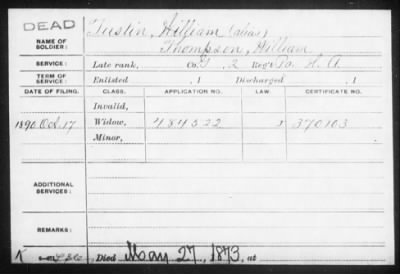 DEAD
NAME OF SOLDIER: Tustin, William (alias)
Thompson, William
SERVICE: Late rank, Co. G, 2 Reg't Pa. H. A.
TERM OF SERVICE: Enlisted , 1 Discharged , 1
DATE OF FILING. CLASS. APPLICATION NO. LAW. CERTIFICATE NO.
Invalid,
1890 Oct. 17 Widow, 484522 370103
Minor,
ADDITIONAL SERVICES:
REMARKS:
Died May 27, 1873, at